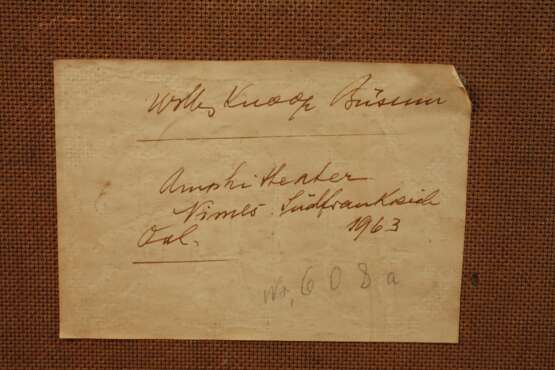 Willy Knoop Büsum
Amphitheater
Nimes. Südfrankreich
Oel. 1963
Nr. 608a